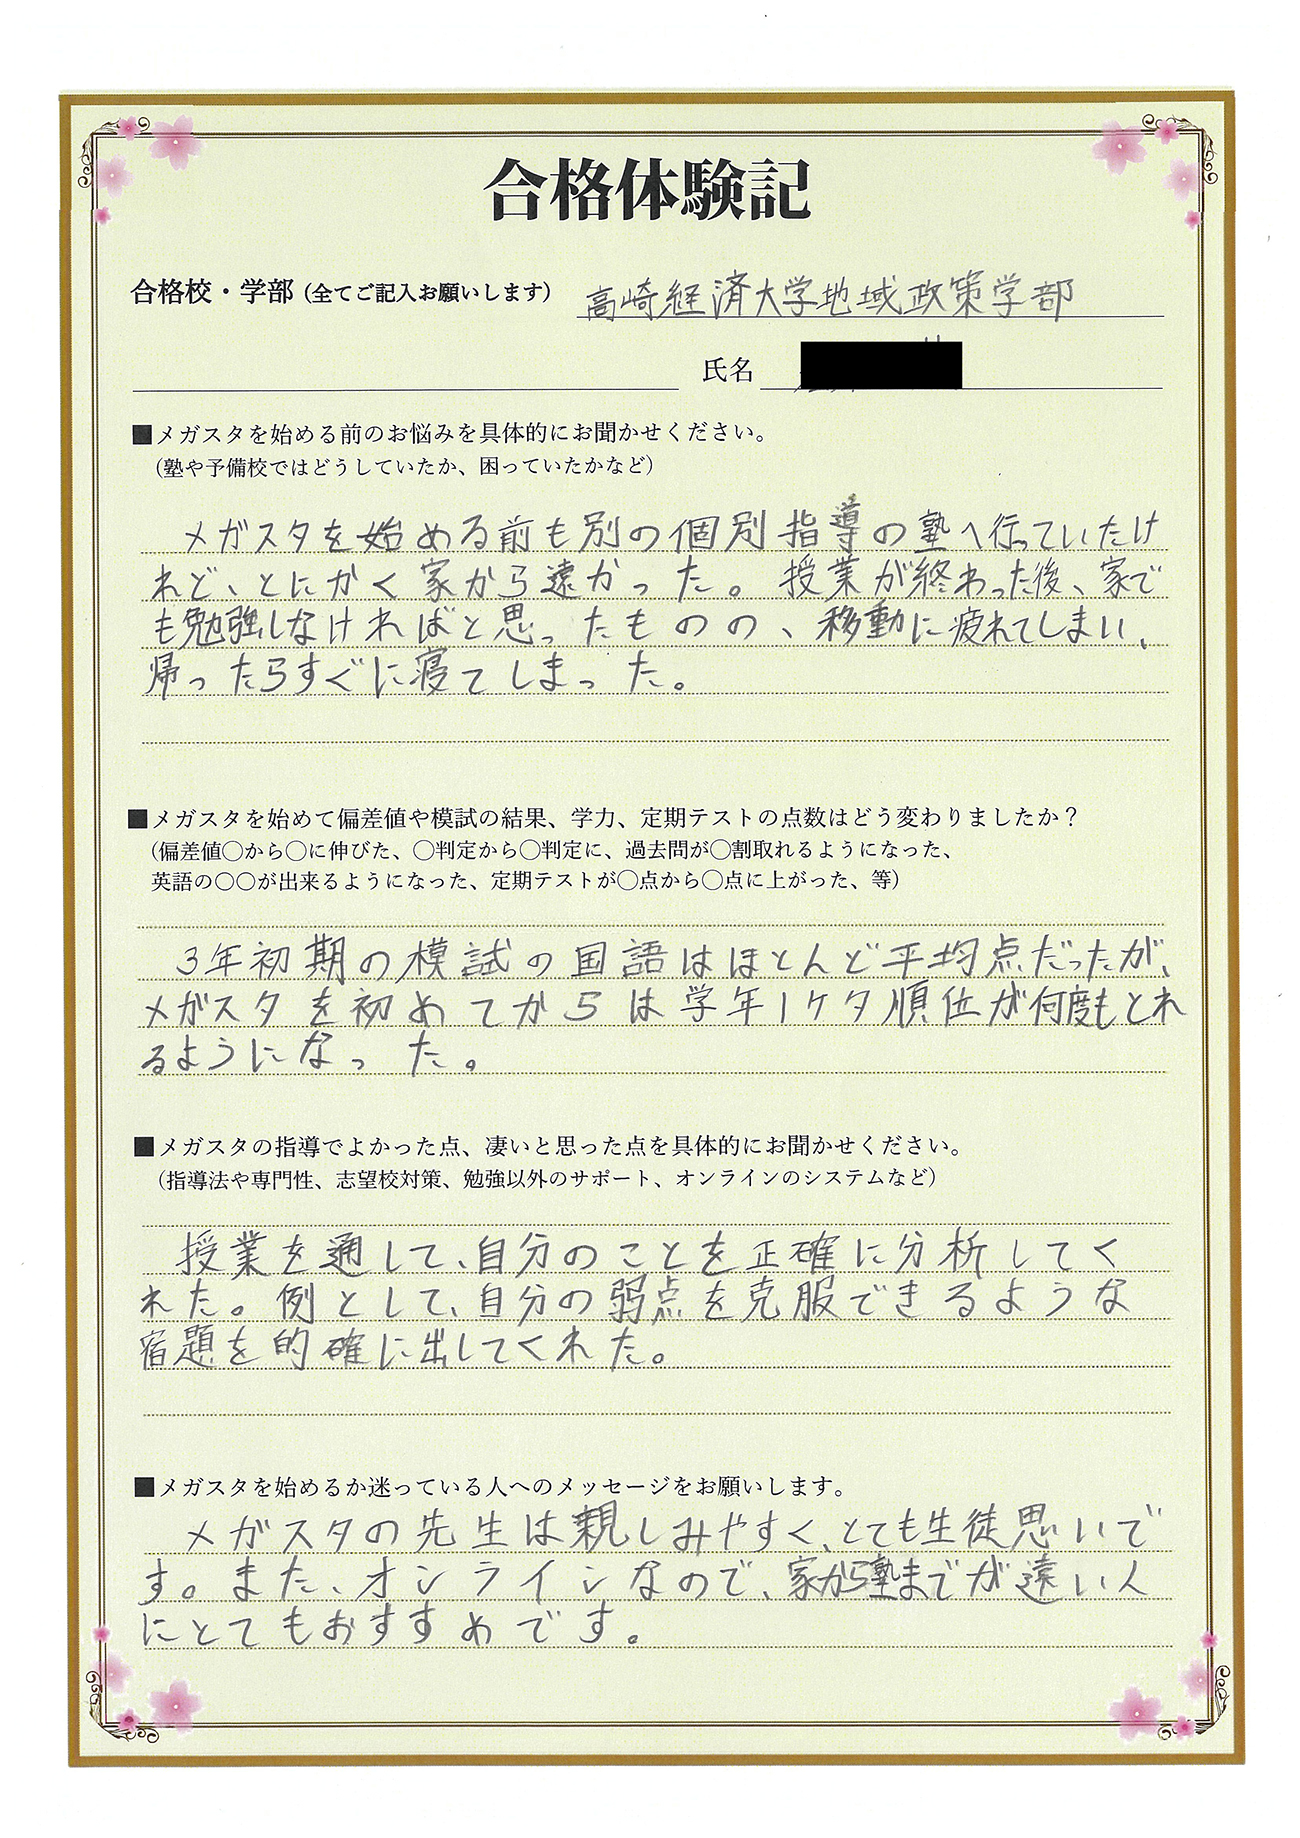 合格体験記
合格校・学部(全てご記入お願いします) 高崎経済大学地域政策学部
氏名
■メガスタを始める前のお悩みを具体的にお聞かせください。
(塾や予備校ではどうしていたか、困っていたかなど)
メガスタを始める前も別の個別指導の塾へ行っていたけ
れど、とにかく家から遠かった。授業が終わった後、家で
も勉強しなければと思ったものの、移動に疲れてしまい、
帰ったらすぐに寝てしまった。
■メガスタを始めて偏差値や模試の結果、学力、定期テストの点数はどう変わりましたか?
(偏差値○から○に伸びた、○判定から○判定に、過去問が○割取れるようになった、
英語の○○が出来るようになった、定期テストが○点から○点に上がった、等)
3年初期の模試の国語はほとんど平均点だったが、
メガスタを初めてからは学年1ケタ順位が何度もとれ
るようになった。
■メガスタの指導でよかった点、凄いと思った点を具体的にお聞かせください。
(指導法や専門性、志望校対策、勉強以外のサポート、オンラインのシステムなど)
授業を通して、自分のことを正確に分析してく
れた。例として、自分の弱点を克服できるような
宿題を的確に出してくれた。
■メガスタを始めるか迷っている人へのメッセージをお願いします。
メガスタの先生は親しみやすく、とても生徒思いで
す。また、オンラインなので、家から塾までが遠い人
にとてもおすすめです。